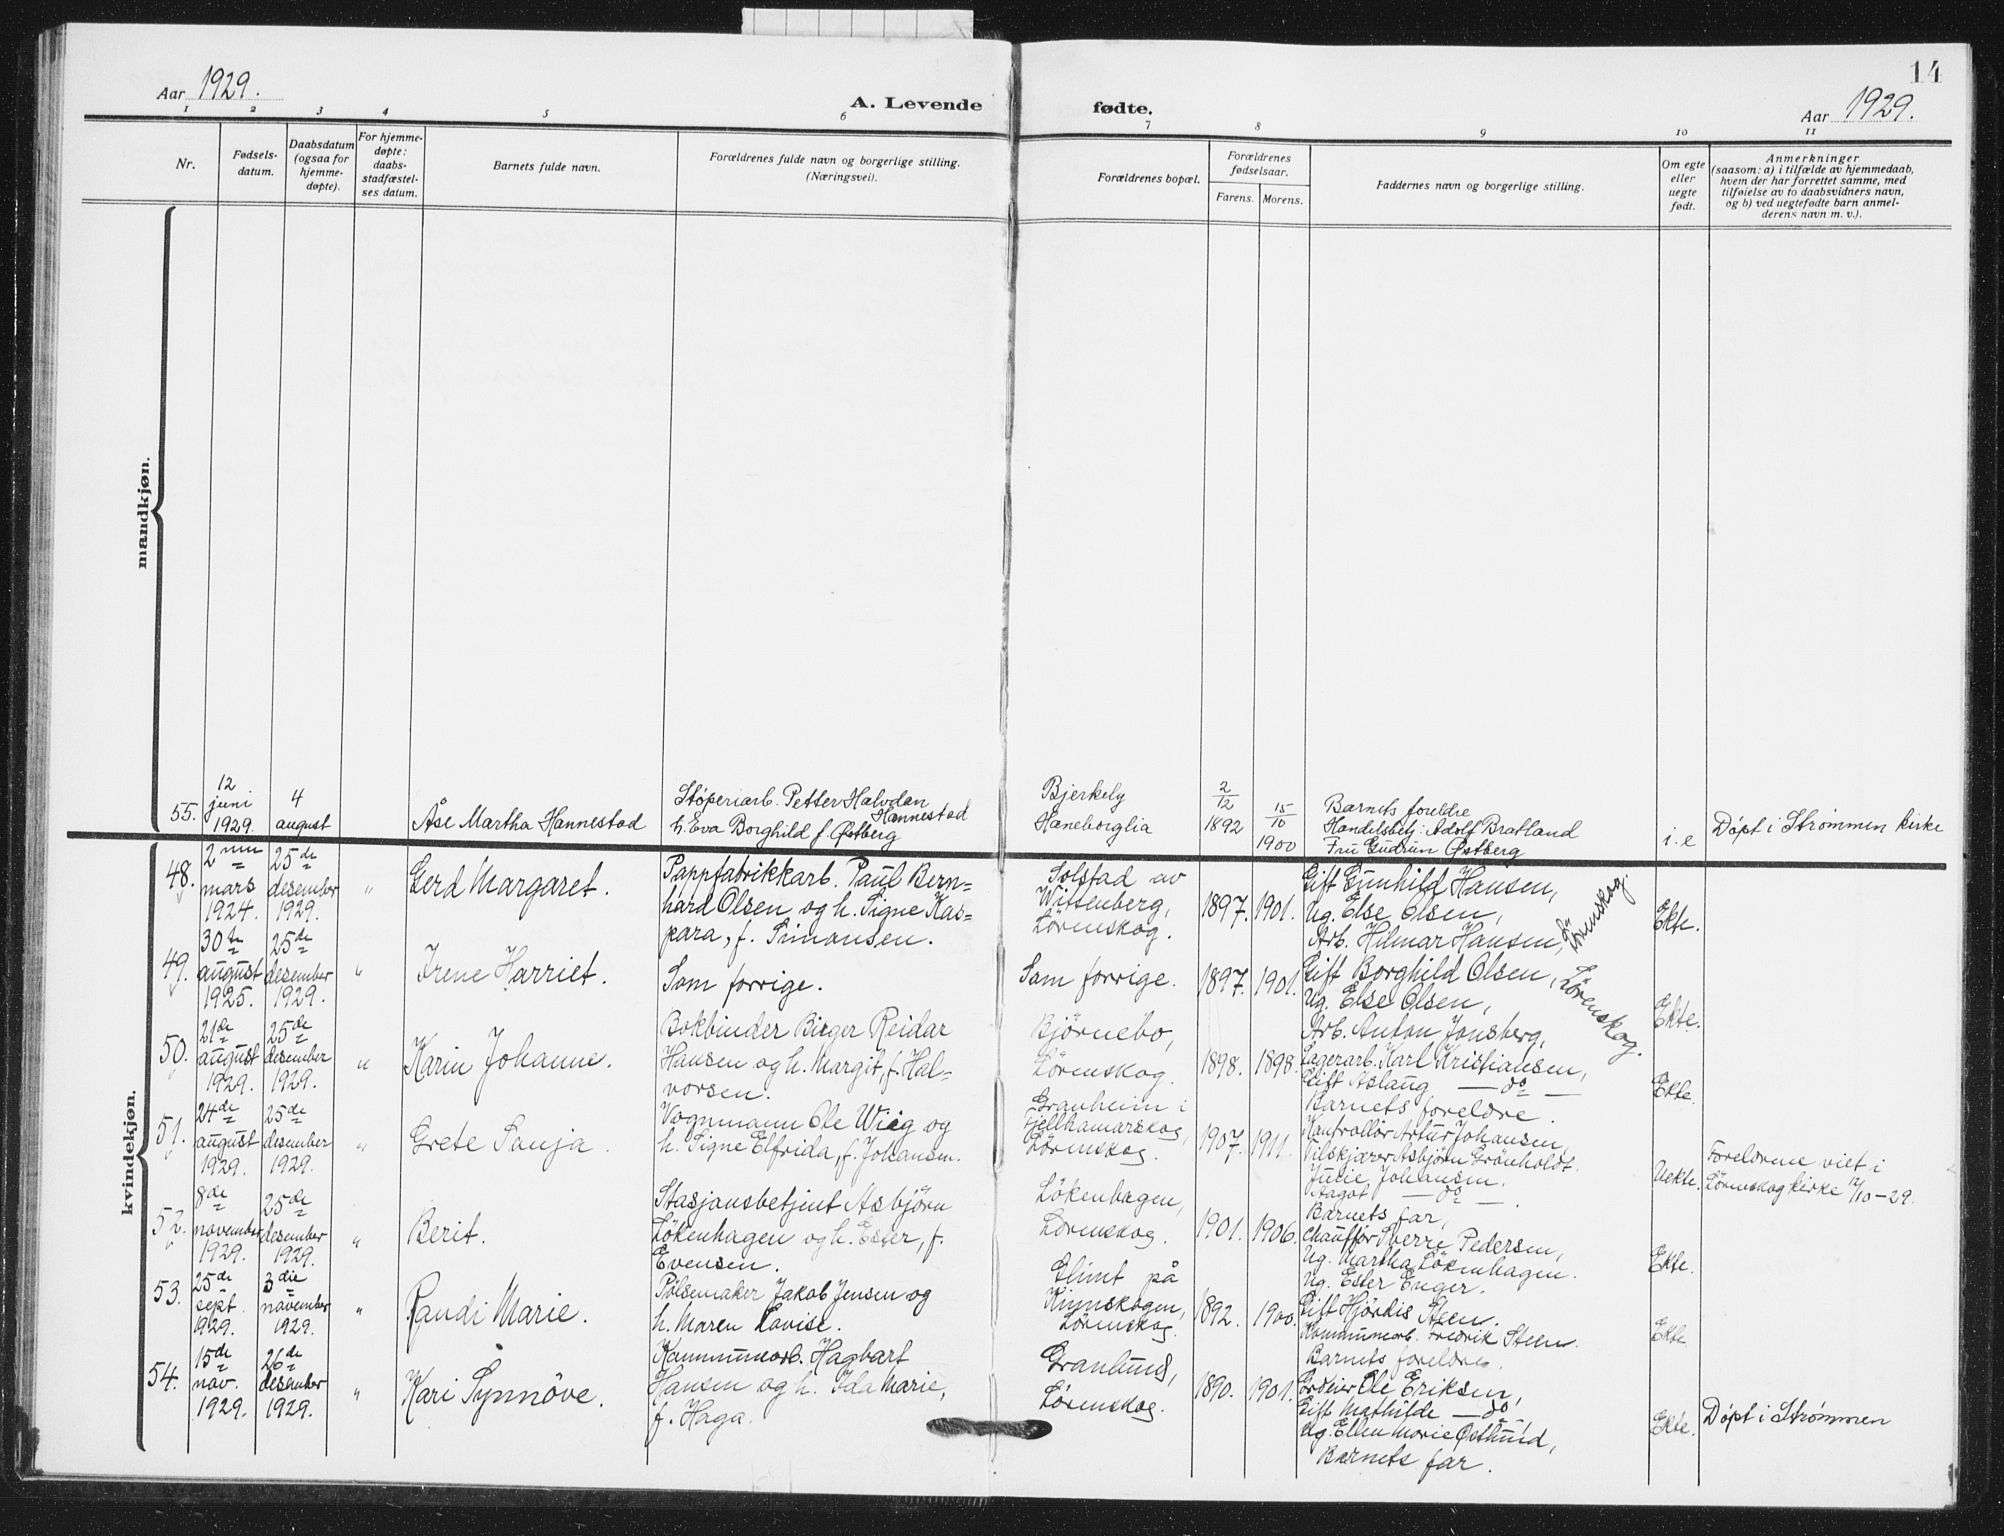 14
Aar 1929.
A. Levende fødte.
Aar 1929.
1 2 3 4 5 6 7 8 9 10 11
Nr.
Fødsels-
datum.
Daabsdatum
(ogsaa for
hjemme-
døpte).
For hjemme-
døpte:
daabs-
stadfæstel-
ses datum.
Barnets fulde navn.
Forældrenes fulde navn og borgerlige stilling.
(Næringsvei).
Forældrenes bopæl.
Forældrenes
fødselsaar.
Farens. Morens.
Faddernes navn og borgerlige stilling.
Om egte
eller
uegte
født.
Anmerkninger
(saasom: a) i tilfælde av hjemmedaab,
hvem der har forrettet samme, med
tilføielse av to daabsvidners navn,
og b) ved uegtefødte barn anmel-
derens navn m. v.).
mandkjøn.
55.
12
juni
1929.
4
august
Åse Martha Hannestad
Støperiarb. Petter Halvdan
Hannestad
h. Eva Borghild f. Østberg
Bjerkely
Haneborglia
2/12
1892
15/10
1900
Barnets foreldre
Handelsbetj: Adolf Bratland
Fru Gudrun Østberg
i. e
Døpt i Strømmen kirke
kvindekjøn.
48.
2nen
mars
1924.
25de
desember
1929.
"
Gerd Margaret.
Pappfabrikkarb. Paul Bern=
hard Olsen og h. Signe Kas-
para, f. Simonsen.
Solstad av
Wittenberg,
Lörenskog.
1897. 1901.
Gift Gunhild Hansen,
Ug. Else Olsen,
Arb. Hilmar Hansen,
Lörenskog.
Ekte.
49.
30te
august
1925.
25de
desember
1929.
"
Irene Harriet.
Som forrige.
Som forrige.
1897. 1901.
Gift Borghild Olsen,
Ug. Else Olsen,
Arb. Anton Jonsberg,
Lörenskog.
Ekte.
50.
21de
august
1929.
25de
desember
1929.
"
Karin Johanne.
Bokbinder Birger Reidar
Hansen og h. Margit, f. Hal-
vorsen.
Bjørnebo,
Lörenskog.
1898. 1898.
Lagerarb. Karl Kristiansen,
Gift Aslaug — do —
Barnets foreldre.
Ekte.
51.
24de
august
1929.
25de
desember
1929.
"
Grete Sonja.
Vognmann Ole Wiig og
h. Signe Elfrida, f. Johansen.
Granheim i
Fjellhamarskog,
Lörenskog.
1907. 1911.
Kontrollör Artur Johansen,
Filskjærer Asbjörn Grönholdt.
Julie Johansen.
Aagot — do — .
Barnets far,
Uekte.
Foreldrene viet i
Lörenskog kirke 12/10-29.
52.
8de
november
1929.
25de
desember
1929.
"
Berit.
Stasjonsbetjent Asbjörn
Lökenhagen og h. Ester, f.
Evensen.
Lökenhagen,
Lörenskog.
1901. 1906.
Chauffør Sverre Pedersen,
Ug. Martha Lökenhagen.
Ug. Ester Enger.
Ekte.
53.
25de
sept.
1929.
3die
november
1929.
"
Randi Marie.
Pölsemaker Jakob Jensen og
h. Maren Lovise.
Glimt på
Kirkeskogen,
Lörenskog.
1892. 1900.
Gift Hjördis Steen.
Kommunearb. Fredrik Steen.
Barnets foreldre.
Ekte.
54.
15de
nov.
1929.
26de
desember
1929.
"
Kari Synnöve.
Kommunearb. Hagbart
Hansen og h. Ida Marie,
f. Haga.
Granlund,
Lörenskog.
1890. 1901.
Gift Mathilde — do
Ug. Ellen Marie Østlund,
Barnets far.
Ekte.
Døpt i Strømmen